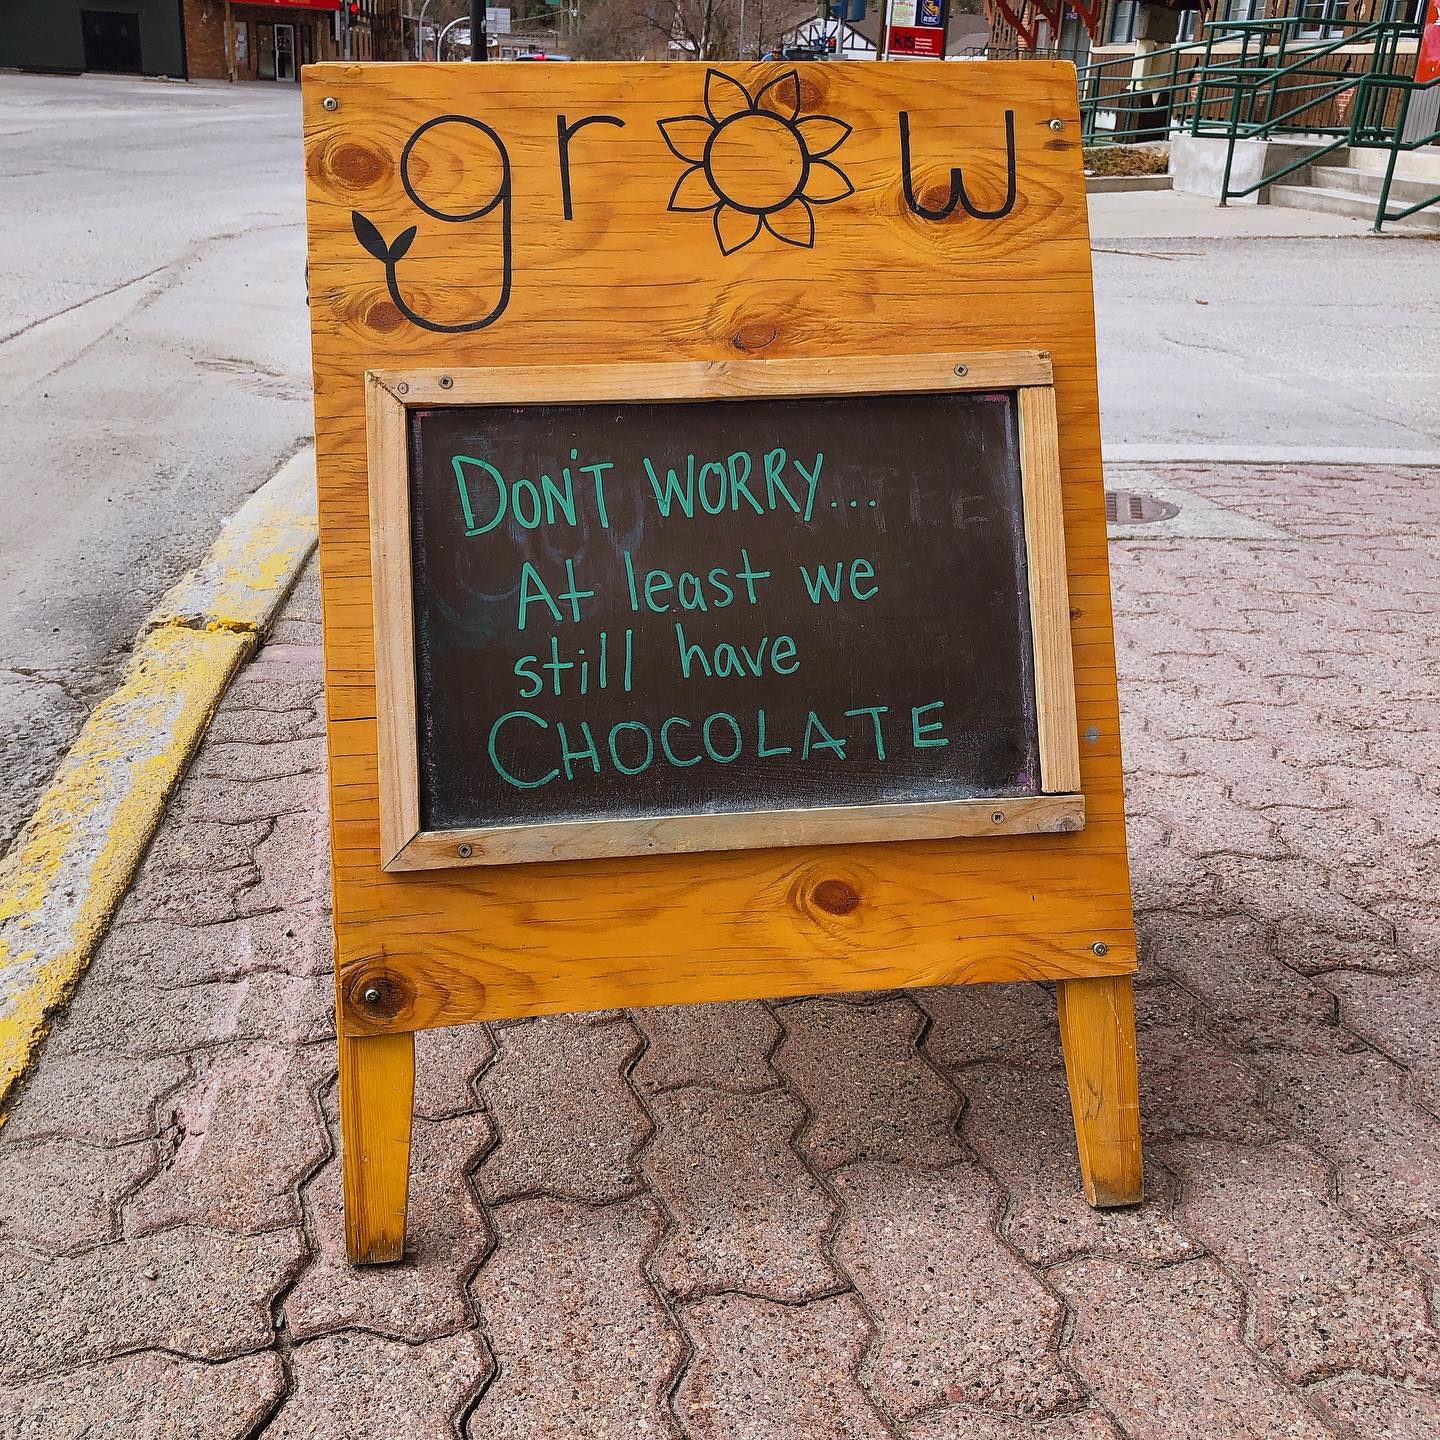 grow
DON'T WORRY...
At least we
still have
CHOCOLATE
RBC
kis